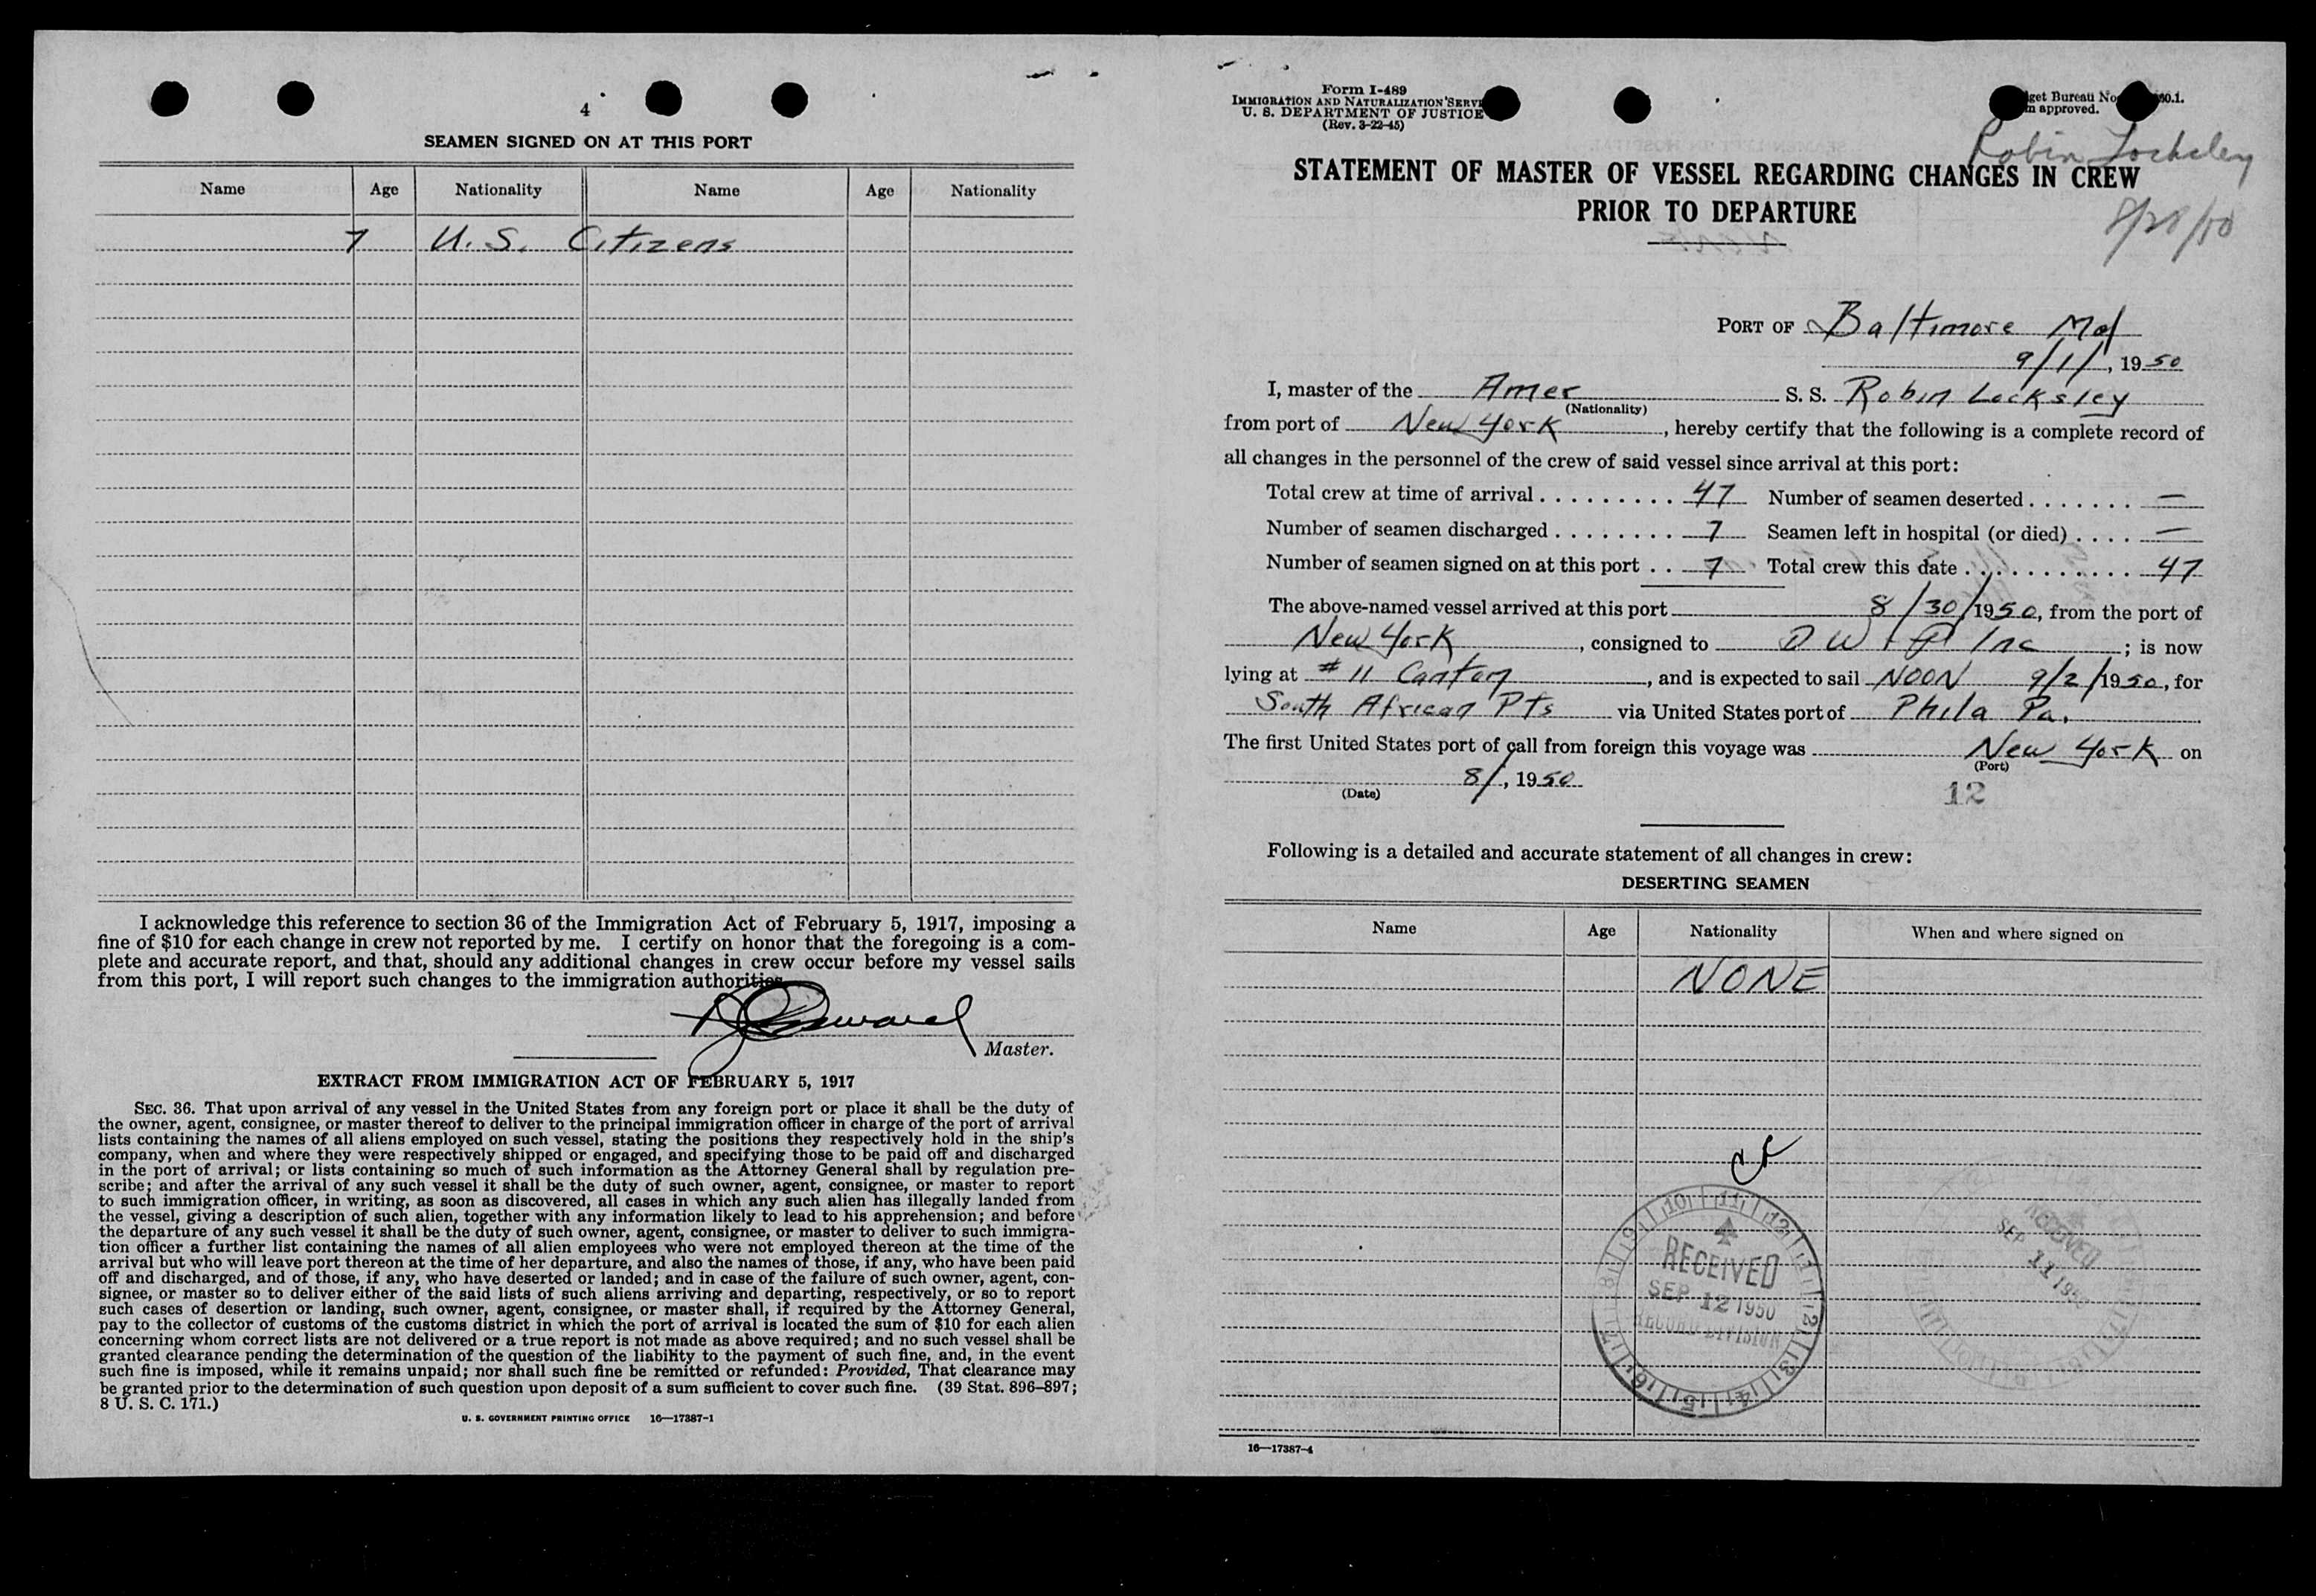 4
SEAMEN SIGNED ON AT THIS PORT
Name Age Nationality Name Age Nationality
7 U.S. Citizens
I acknowledge this reference to section 36 of the Immigration Act of February 5, 1917, imposing a
fine of $10 for each change in crew not reported by me. I certify on honor that the foregoing is a com-
plete and accurate report, and that, should any additional changes in crew occur before my vessel sails
from this port, I will report such changes to the immigration authorities.
Master.
EXTRACT FROM IMMIGRATION ACT OF FEBRUARY 5, 1917
SEC. 36. That upon arrival of any vessel in the United States from any foreign port or place it shall be the duty of
the owner, agent, consignee, or master thereof to deliver to the principal immigration officer in charge of the port of arrival
lists containing the names of all aliens employed on such vessel, stating the positions they respectively hold in the ship's
company, when and where they were respectively shipped or engaged, and specifying those to be paid off and discharged
in the port of arrival; or lists containing so much of such information as the Attorney General shall by regulation pre-
scribe; and after the arrival of any such vessel it shall be the duty of such owner, agent, consignee, or master to report
to such immigration officer, in writing, as soon as discovered, all cases in which any such alien has illegally landed from
the vessel, giving a description of such alien, together with any information likely to lead to his apprehension; and before
the departure of any such vessel it shall be the duty of such owner, agent, consignee, or master to deliver to such immigra-
tion officer a further list containing the names of all alien employees who were not employed thereon at the time of the
arrival but who will leave port thereon at the time of her departure, and also the names of those, if any, who have been paid
off and discharged, and of those, if any, who have deserted or landed; and in case of the failure of such owner, agent, con-
signee, or master so to deliver either of the said lists of such aliens arriving and departing, respectively, or so to report
such cases of desertion or landing, such owner, agent, consignee, or master shall, if required by the Attorney General,
pay to the collector of customs of the customs district in which the port of arrival is located the sum of $10 for each alien
concerning whom correct lists are not delivered or a true report is not made as above required; and no such vessel shall be
granted clearance pending the determination of the question of the liability to the payment of such fine, and, in the event
such fine is imposed, while it remains unpaid; nor shall such fine be remitted or refunded: Provided, That clearance may
be granted prior to the determination of such question upon deposit of a sum sufficient to cover such fine. (39 Stat. 896–897;
8 U. S. C. 171.)
U. S. GOVERNMENT PRINTING OFFICE 16—17387-1
Form I-489
IMMIGRATION AND NATURALIZATION SERVI
U. S. DEPARTMENT OF JUSTICE
(Rev. 3-22-45)
get Bureau No. 0.1.
approved.
Robin Locksley
8/28/50
STATEMENT OF MASTER OF VESSEL REGARDING CHANGES IN CREW
PRIOR TO DEPARTURE
PORT OF Baltimore Md
9/1/, 1950
I, master of the Amer S. S. Robin Locksley
(Nationality)
from port of New York, hereby certify that the following is a complete record of
all changes in the personnel of the crew of said vessel since arrival at this port:
Total crew at time of arrival . . . . . . . . . 47 Number of seamen deserted . . . . . . . —
Number of seamen discharged . . . . . . . . 7 Seamen left in hospital (or died) . . . . —
Number of seamen signed on at this port . . 7 Total crew this date . . . . . . . . . . . . 47
The above-named vessel arrived at this port 8/30/1950, from the port of
New York, consigned to Inc; is now
lying at # 11 Canton, and is expected to sail NOON 9/2/1950, for
South African Pts via United States port of Phila Pa.
The first United States port of call from foreign this voyage was New York on
(Port)
8/, 1950
(Date)
12
Following is a detailed and accurate statement of all changes in crew:
DESERTING SEAMEN
Name Age Nationality When and where signed on
NONE
RECEIVED
SEP 12 1950
RECORD DIVISION
RECEIVED
SEP 11 1950
16—17387-4